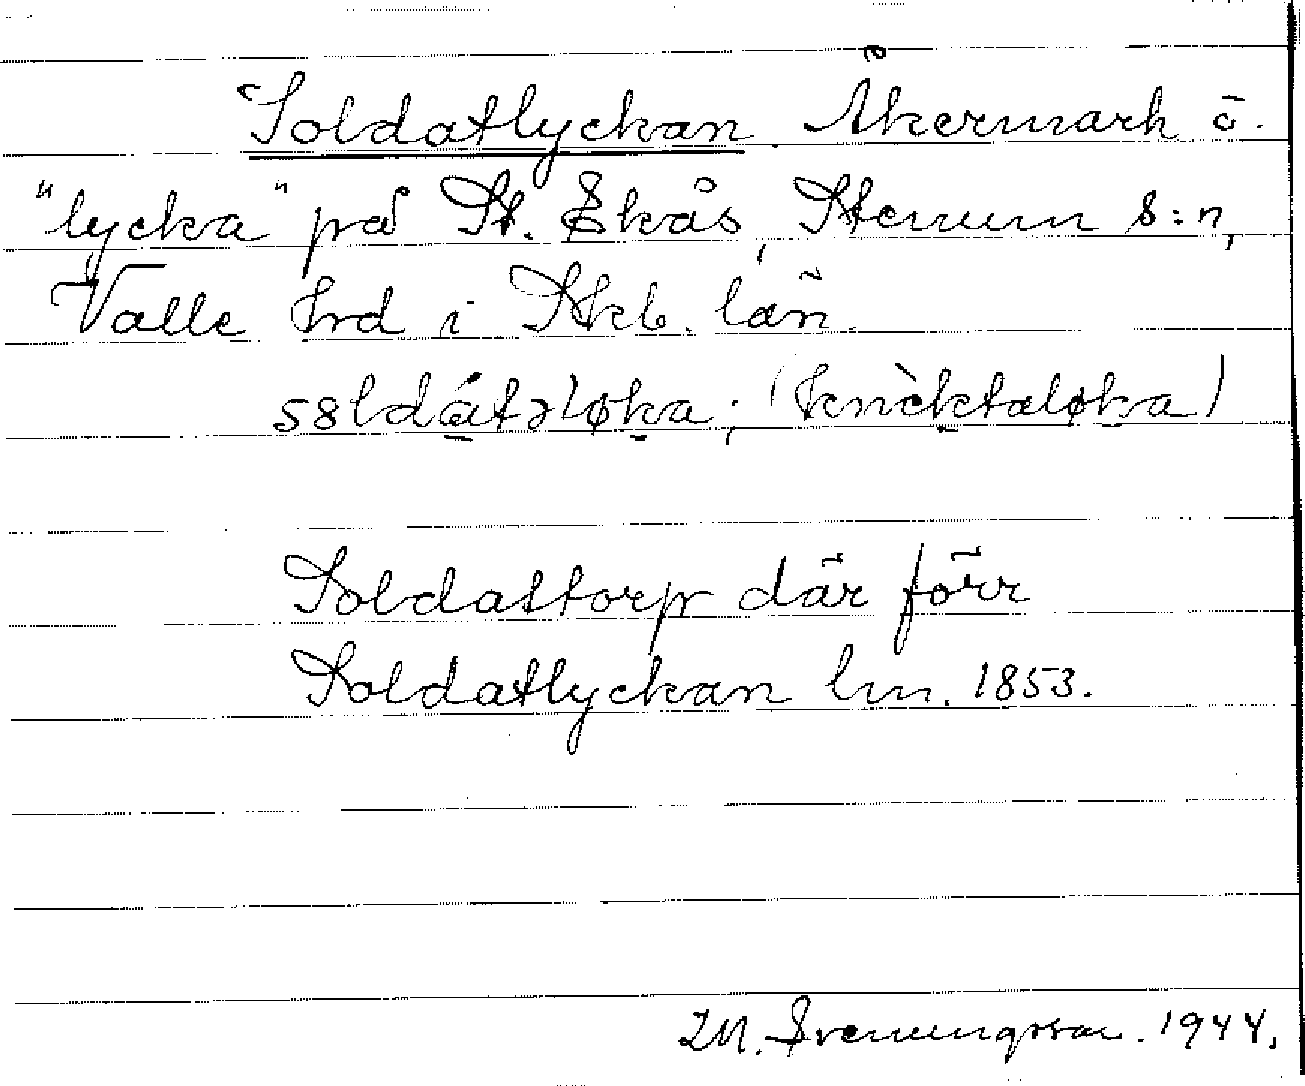 Soldatlyckan Åkermark ö.
"lycka" på St. Ekås, Stenum s:n,
Valle hrd i Skb. län.
s8ldátəløka; (knèktaløka)
Soldattorp där förr
Soldatlyckan lm. 1853.
M. Svenungsson. 1944.